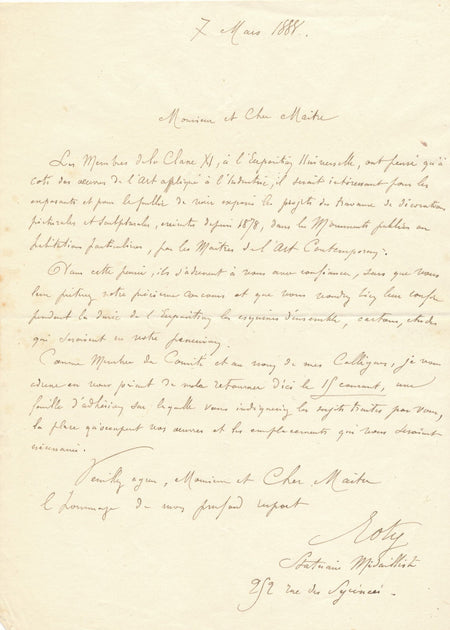 7 Mars 1888.
Monsieur et Cher Maitre
Les Membres de la Classe XI, à l'Exposition Universelle, ont pensé qu'à
coté des œuvres de l'Art appliqué à l'Industrie, il serait intéressant pour les
exposants et pour le public de voir exposés les projets de travaux de décoration
picturales et sculpturales, exécutés depuis 1878, dans les Monuments publics ou
habitations particulières, par les Maitres de l'Art Contemporain.
Dans cette pensée, ils s'adressent à vous avec confiance, surs que vous
leur prêterez votre précieux concours et que vous voudrez bien leur confier
pendant la durée de l'Exposition les esquisses d'ensemble, cartons, études
qui seraient en votre possession.
Comme Membre du Comité et au nom de mes Collègues, je vous
adresse en vous priant de me la retourner d'ici le 15 courant, une
feuille d'adhésion sur laquelle vous indiquerez les sujets traités par vous,
la place qu'occupent vos œuvres et les emplacements qui vous seraient
nécessaires.
Veuillez agréer, Monsieur et Cher Maitre
l'hommage de mon profond respect
Roty
Statuaire Médailliste
252 rue des